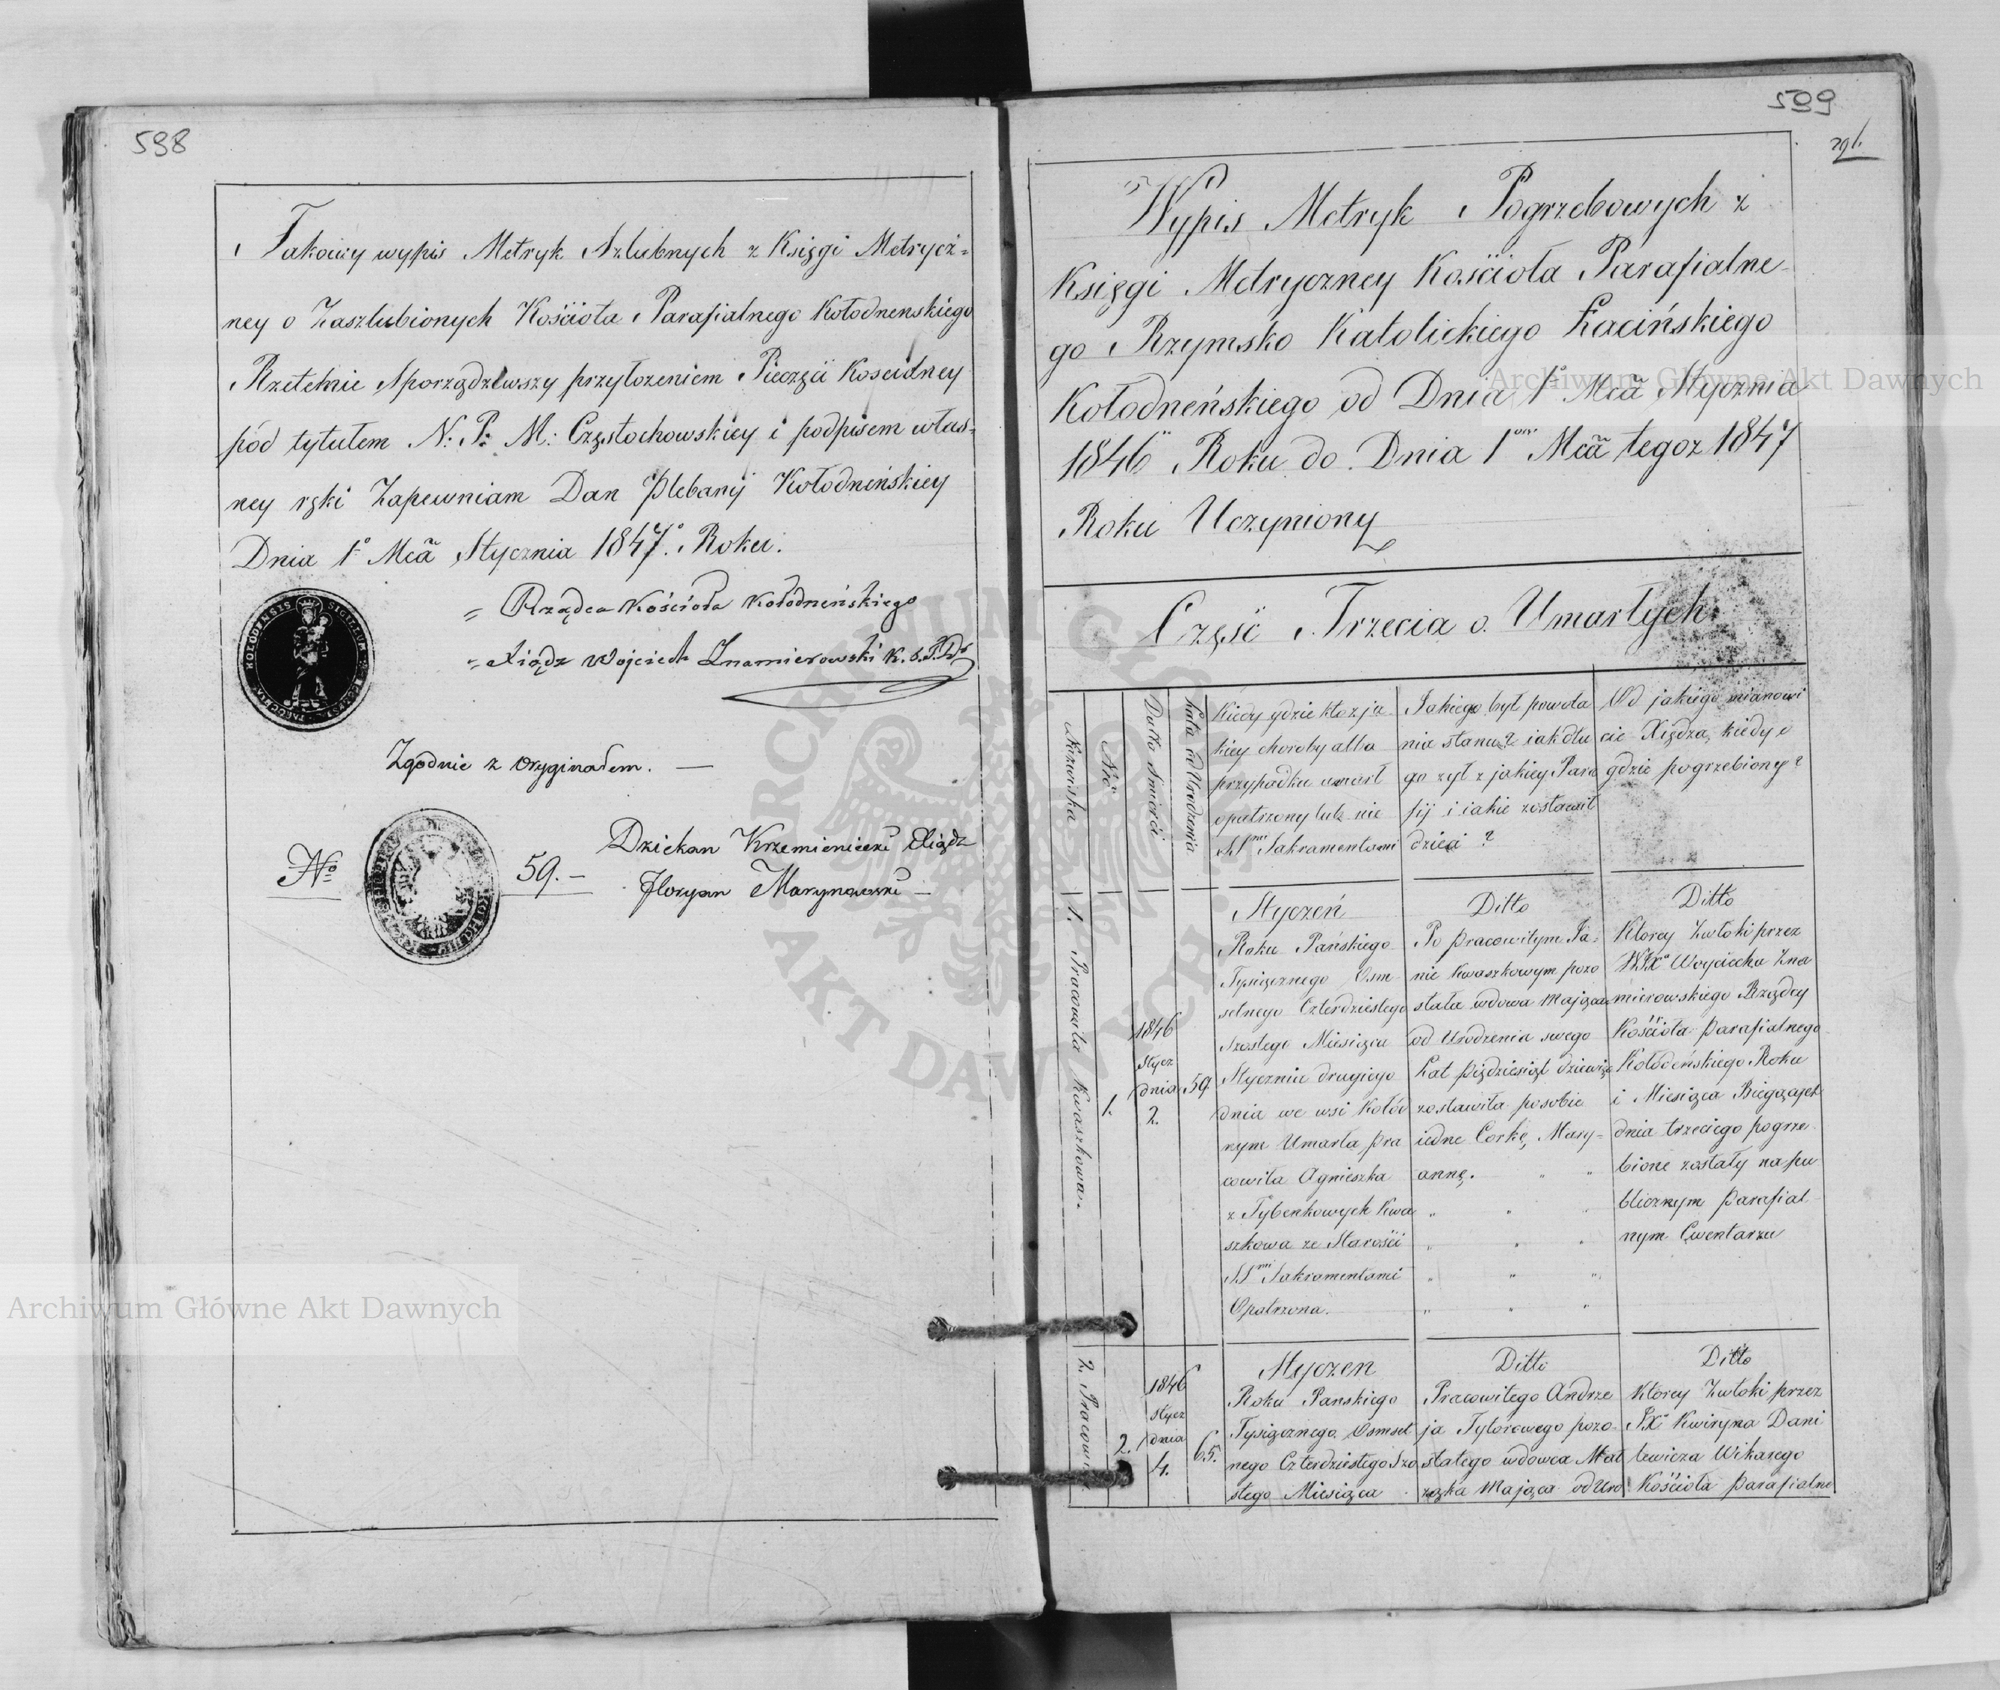 598
Takowy wypis Metryk Szlubnych z Księgi Metrycz=
ney o Zaszlubionych Kościoła Parafialnego Kołodnenskiego
Rzetelnie Sporządziwszy przyłożeniem Pieczęci Koscielney
pód tytułem N: P: M: Częstochowskiey i podpisem włas=
ney ręki Zapewniam Dan w Plebanij Kołodnińskiey
Dnia 1º Mcã Stycznia 1847º. Roku.
= Rządca Kościoła Kołodneńskiego
= Xiądz Woyciech Znamierowski
Zgodnie z Oryginałem. —
Nº 59. —
Dziekan Krzemieniecki Xiądz
Floryan Marynowski —
599
Wypis Metryk Pogrzebowych z
Księgi Metryczney Kościoła Parafialne-
go Rzymsko Katolickiego Łacińskiego
Kołodneńskiego od Dnia 1º Mcã Stycznia
1846º Roku do Dnia 1 Mcã tegoz 1847
Roku Uczyniony
Część Trzecia o Umarłych
Nazwiska
Nro
Datta Smierci
Lata od Urodzenia
Kiedy gdzie kto z ja
kiey choroby albo
przypadku umarł
opatrzony lub nie
SSmi Sakramentami
Jakiego był powoła
nia stanu? iak dłu
go zył z jakiey Para
fij i iakie zostawił
dzieci?
Od jakiego mianowi
cie Xiędza, kiedy i
gdzie pogrzebiony?
1. Pracowita Kwaszkowa.
1.
1846
Stycz
dnia
2.
59
Styczeń
Roku Pańskiego
Tysiącznego Osm
setnego Czterdziestego
Szostego Miesiąca
Stycznia drugiego
dnia we wsi Kołód
nym Umarła Pra
cowita Agnieszka
z Tybenkowych Kwa
szkowa ze Starości
SSmi Sakramentami
Opatrzona.
Ditto
Po pracowitym Ja-
nie Kwaszkowym pozo
stała wdowa Mająca
od Urodzenia swego
Lat pięćdziesiąt dziewięć
zostawiła po sobie
iedne Corkę Mary=
annę.
Ditto
Ktorey Zwłoki przez
WJXa Woyciecha Zna
mierowskiego Rządcy
Kościoła Parafialnego
Kołodeńskiego Roku
i Miesiąca Bieżących
dnia trzeciego pogrze-
bione zostały na pu
blicznym parafial
nym Cwentarzu
2. Pracowi
2.
1846
Stycz
dnia
4.
65.
Styczen
Roku Panskiego
Tysiącznego Osmset
nego Czterdziestego Szo
stego Miesiąca
Ditto
Pracowitego Andrze
ja Tytorowego pozo
stałego wdowca Mał
ząka Mająca od Uro
Ditto
Ktorey Zwłoki przez
JXa Kwiryna Dani
lewicza Wikarego
Kościoła parafialne
Archiwum Główne Akt Dawnych
Archiwum Główne Akt Dawnych
ARCHIWUM GŁÓWNE AKT DAWNYCH